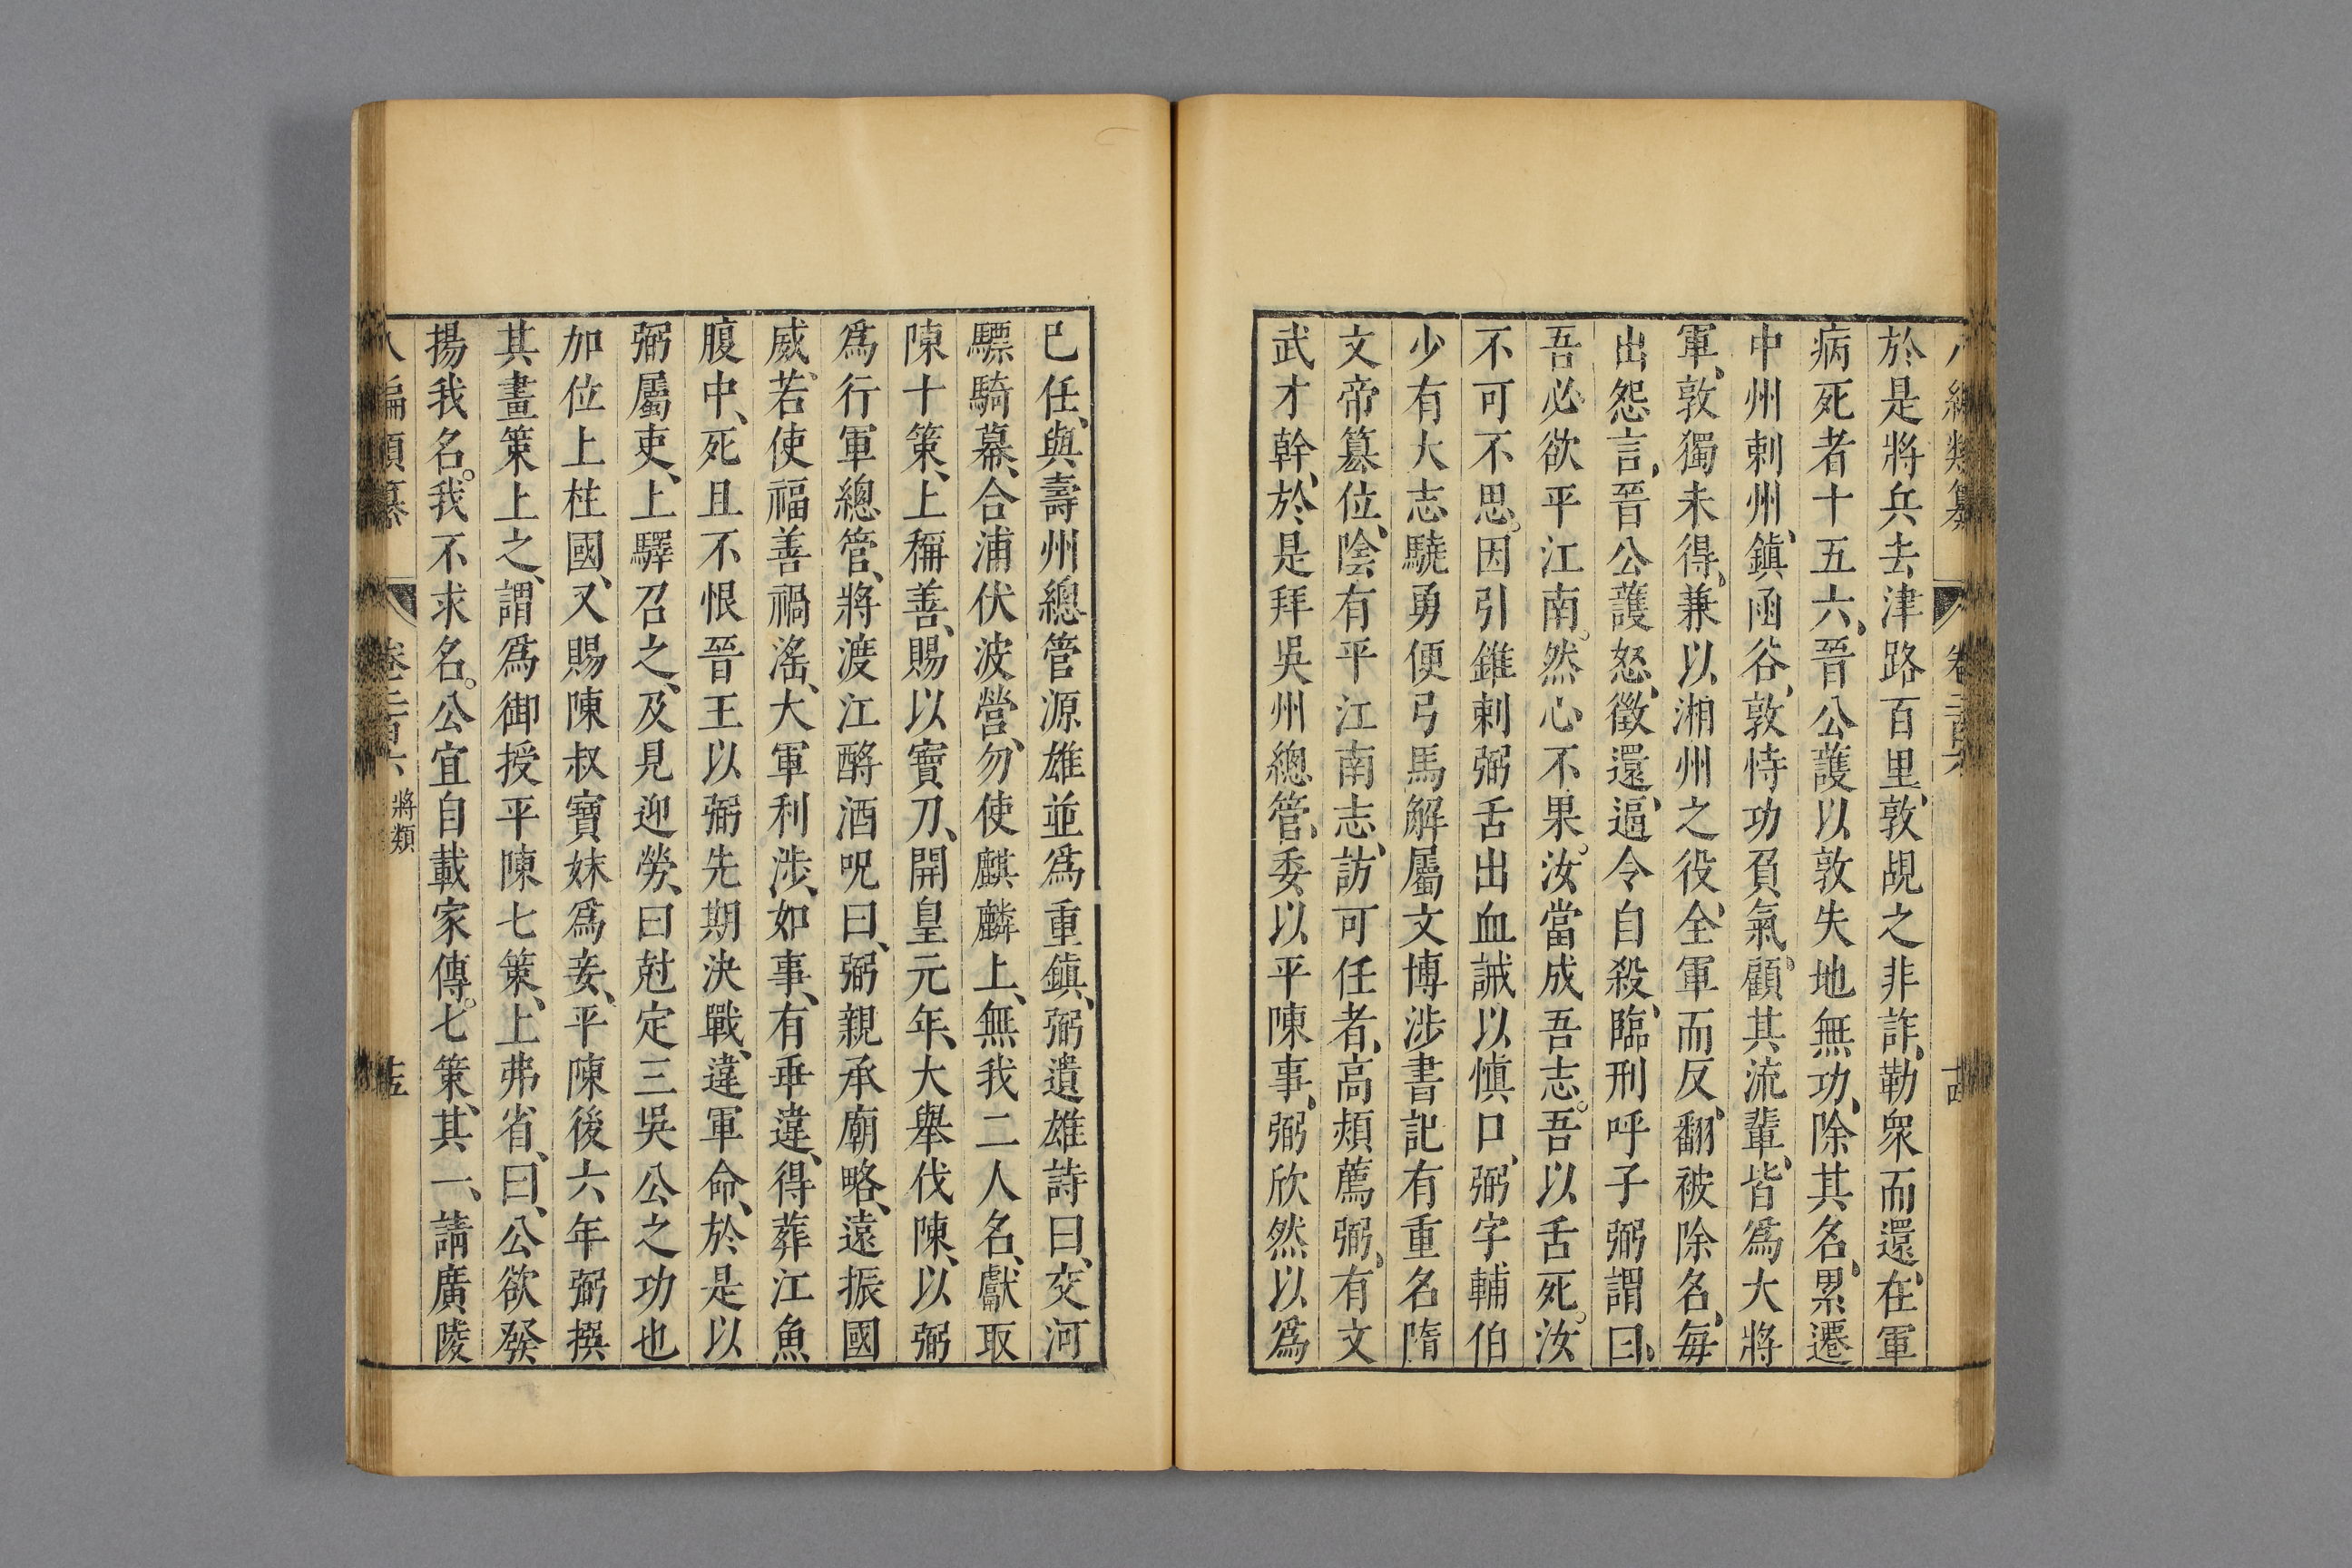 八編類纂 卷二百六 十四
於是將兵去津路百里、敦覘之非詐、勒衆而還、在軍
病死者十五六、晉公護以敦失地無功、除其名、累遷
中州刺州、鎮函谷、敦恃功負氣、顧其流輩、皆爲大將
軍、敦獨未得、兼以湘州之役、全軍而反、翻被除名、每
出怨言、晉公護怒、徵還、逼令自殺、臨刑呼子弼謂曰、
吾必欲平江南。然心不果。汝當成吾志。吾以舌死。汝
不可不思。因引錐刺弼舌出血誡以愼口、弼字輔伯
少有大志驍勇便弓馬解屬文博涉書記有重名隋
文帝簒位、陰有平江南志、訪可任者、高熲薦弼、有文
武才幹、於是拜吳州總管、委以平陳事、弼欣然以爲
已任、與壽州總管源雄並爲重鎮、弼遺雄詩曰、交河
驃騎幕、合浦伏波營、勿使麒麟上、無我二人名、獻取
陳十策、上稱善、賜以寶刀、開皇元年、大舉伐陳、以弼
爲行軍總管、將渡江酹酒呪曰、弼親承廟略、遠振國
威、若使福善禍滛、大軍利涉、如事、有乖違、得葬江魚
腹中、死且不恨晉王以弼先期決戰、違軍命、於是以
弼屬吏、上驛召之、及見迎勞、曰尅定三吳公之功也
加位上柱國、又賜陳叔寶妹爲妾、平陳後六年弼撰
其畫策上之、謂爲御授平陳七策、上弗省、曰、公欲發
揚我名。我不求名。公宜自載家傳。七策、其一、請廣陵
八編類纂 卷二百六 將類 十五